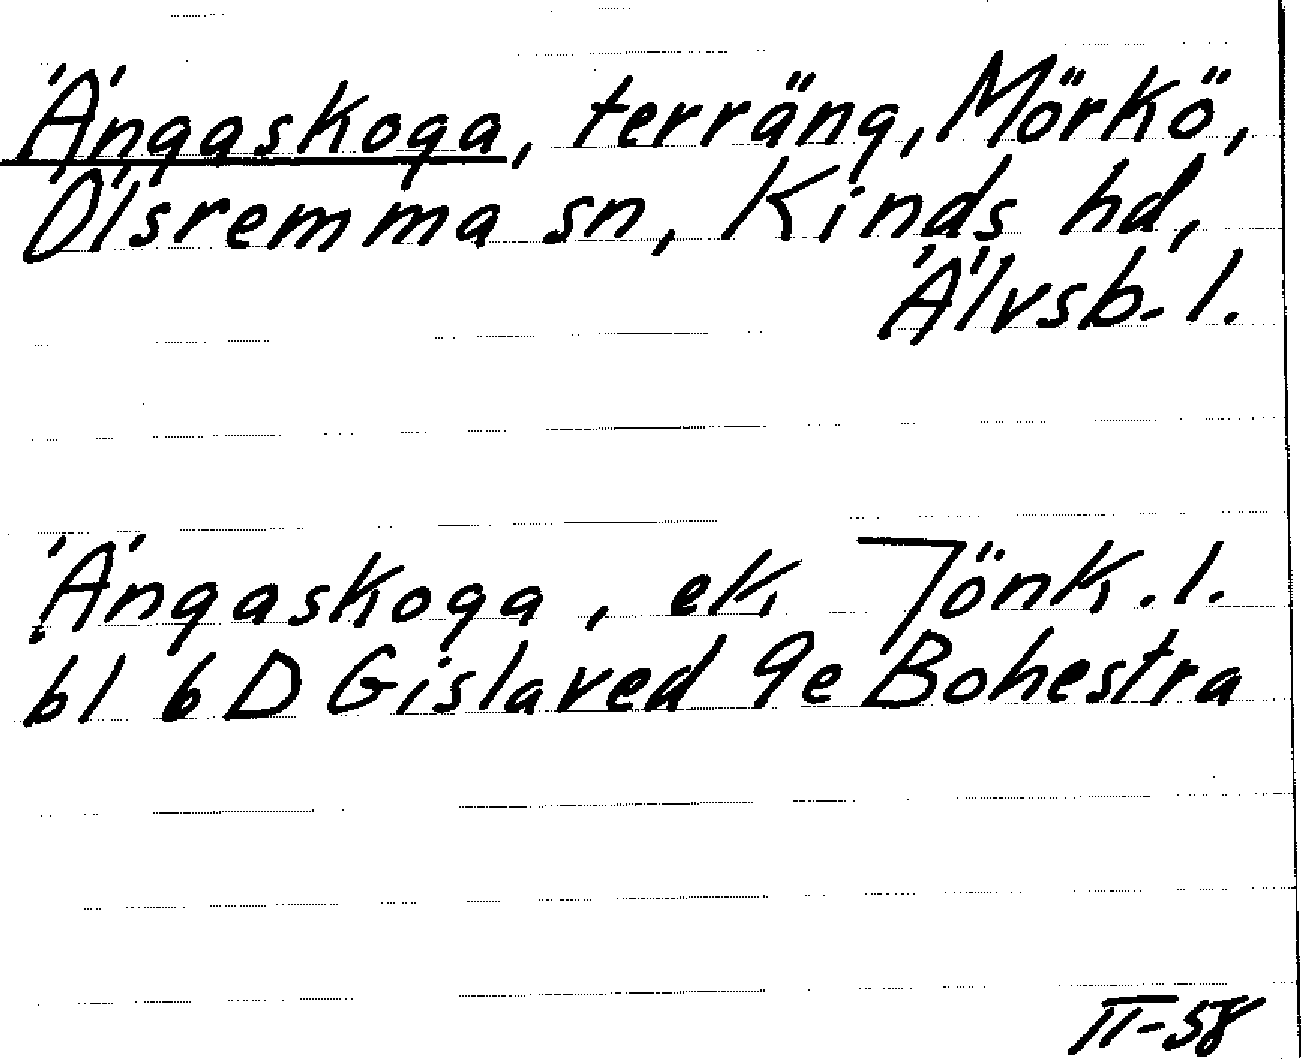 Ängaskoga, terräng, Mörkö,
Ölsremma sn, Kinds hd,
Älvsb. l.
Ängaskoga, ek, Jönk. l.
bl 6 D Gislaved 9e Bohestra
II-58